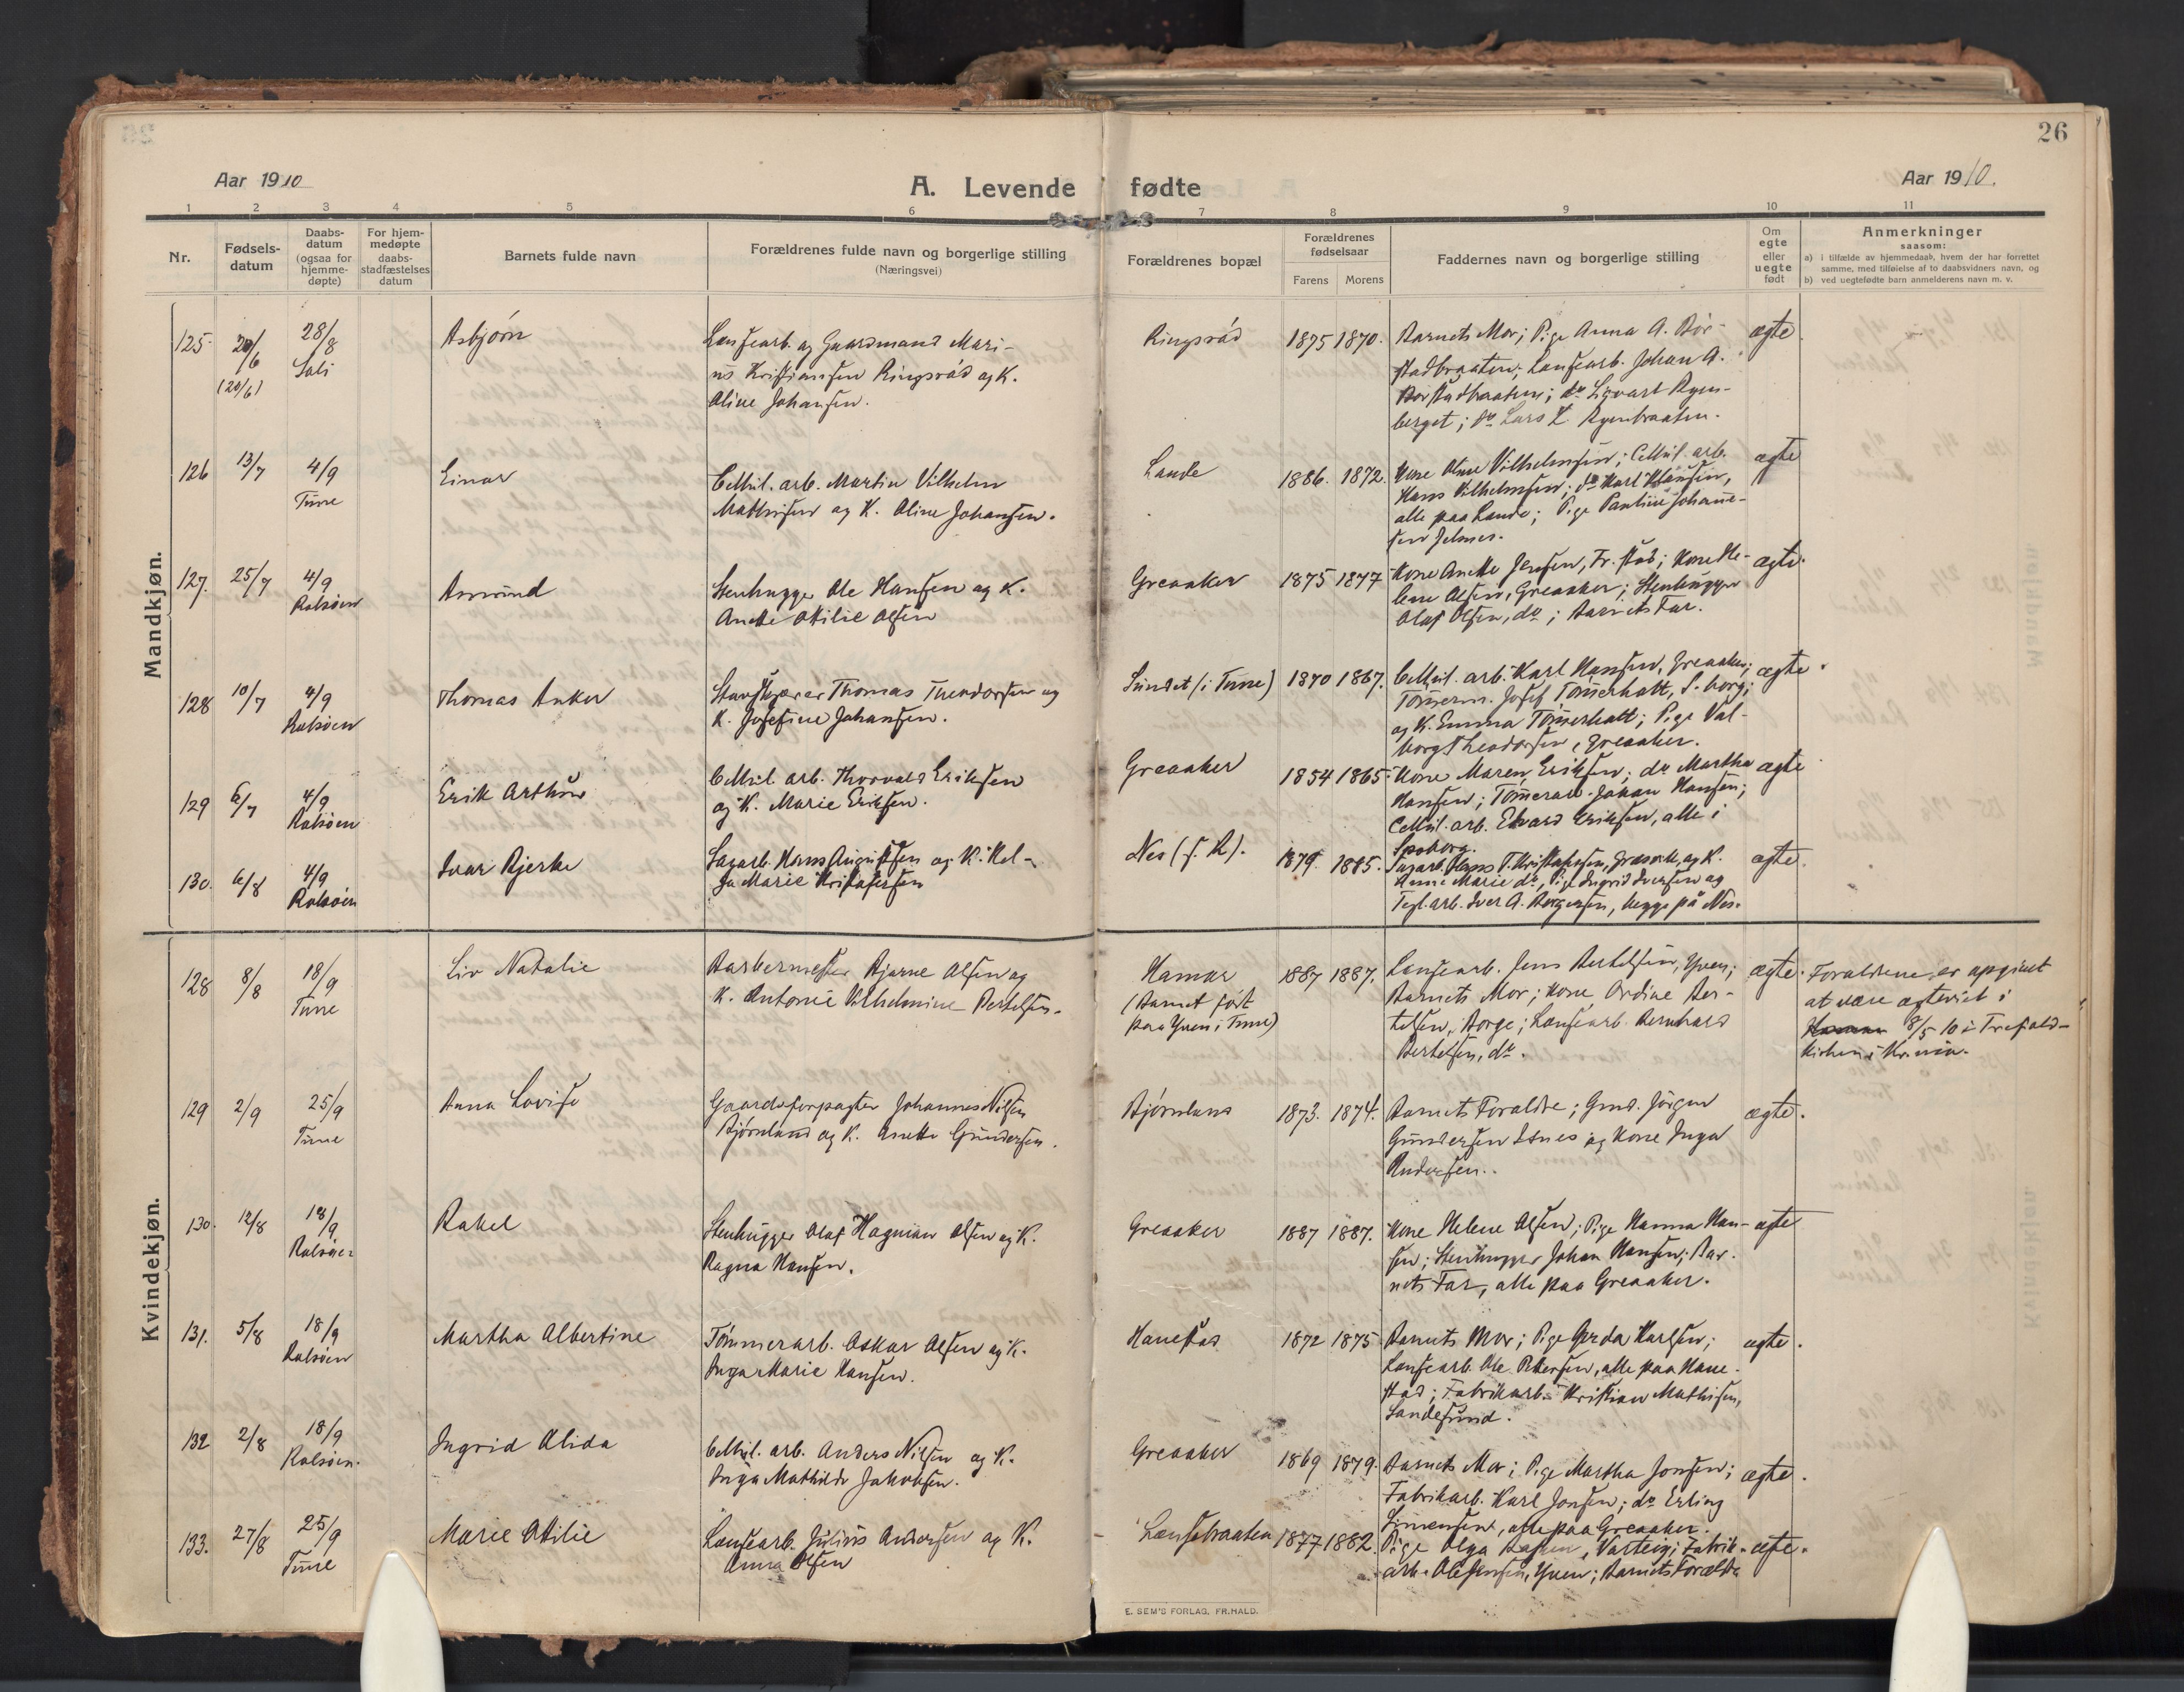 26
Aar 1910
A. Levende fødte
Aar 1910.
1 2 3 4 5 6 7 8 9 10 11
Nr.
Fødsels-
datum
Daabs-
datum
(ogsaa for
hjemme-
døpte)
For hjem-
medøpte
daabs-
stadfæstelses
datum
Barnets fulde navn
Forældrenes fulde navn og borgerlige stilling
(Næringsvei)
Forældrenes bopæl
Forældrenes
fødselsaar
Farens Morens
Faddernes navn og borgerlige stilling
Om
egte
eller
uegte
født
Anmerkninger
saasom:
a) i tilfælde av hjemmedaab, hvem der har forrettet
samme, med tilføielse af to daabsvidners navn, og
b) ved uegtefødte barn anmelderens navn m. v.
Mandkjøn.
125
(20/6)
28/8
Soli
Asbjørn
Lensearb. og Gaardmand Mari-
us Kristiansen Ringsrød og K.
Oline Johansen.
Ringsrød
1875 1870.
Barnets Mor; Pige Anna A. Bør-
stadbraaten; Lensearb. Johan A.
Børstadbraaten; do Sigvart Ryen-
berget; do Lars L. Ryenbraaten.
ægte
126
13/7
4/9
Tune
Einar
Cellul. arb. Martin Vilhelm
Mathisen og K. Oline Johansen.
Lande
1886. 1872.
Kone Oline Vilhelmsen; Cellul. arb.
Hans Vilhelmsen; do Karl
alle paa Lande; Pige Pauline Johanne-
sen
ægte
127.
25/7
4/9
Rolsøen
Asmund
Stenhugger Ole Hansen og K.
Anette Otilie Olsen
Greaaker
1875 1877
Kone Anette Jensen, Fr.stad; Kone He-
lene Olsen, Greaaker; Stenhugger
Olaf Olsen, do; Barnets Far.
ægte.
128
10/7
4/9
Rolsøen
Thomas Anker
Thomas Theodorsen og
K. Josefine Johansen.
Sundet (i Tune)
1870 1867.
Cellul. arb. Karl Hansen, Greaaker;
Tømerm. Josef Tømerholt, S.borg;
og K. Emma Tømerholt; Pige Val-
borg Theodorsen, Greaaker.
ægte.
129
6/7
4/9
Rolsøen
Erik Arthur
Cellul. arb. Thorvald Eriksen
og K. Marie Eriksen.
Greaaker
1854 1865
Kone Maren Eriksen; do Martha
Hansen; Tømerarb. Johan Hansen;
Cellul. arb. Edvard Eriksen, alle i
Spsborg.
ægte
130.
6/8
4/9
Rolsøen
Ivar Bjerke
Sagarb. Hans Augustsen og K. Hel-
ga Marie Kristofersen
Nes (s. R).
1879. 1885.
Sagarb. Hans T. Kristofersen, Græsvik, og K.
Anne Marie do, Pige Ingrid Iversen og
Tegl.arb. Iver A. Borgersen, begge på Nes.
ægte.
Kvindekjøn.
128
8/8
18/9
Tune
Liv Natalie
Barbermester Bjarne Olsen og
K. Antonie Vilhelmine Bertelsen.
Hamar
(Barnet født
paa Yven i Tune)
1887 1887.
Lensearb. Jens Bertelsen, Yven;
Barnets Mor; Kone Ordine Ber-
telsen, Borge; Lensearb. Bernhard
Bertelsen, do.
ægte.
Forældrene er opgivet
at være ægteviet i
Hamar 8/5 10 i Trefold-
kirken i Kr.nia.
129
2/9
25/9
Tune
Anna Lovise
Gaardsforpagter Johannes Nilsen
Bjørnland og K. Anette Gundersen.
Bjørnland
1873. 1874.
Barnets Forældre; Grnd. Jørgen
Gundersen Isnes og Kone Inga
Andersen.
ægte.
130.
12/8
18/9
Rolsøen
Rakel
Stenhugger Olaf Hagman Olsen og K.
Ragna Hansen.
Greaaker
1887 1887.
Kone Helene Olsen; Pige Hanna Han-
sen; Stenhugger Johan Hansen; Bar-
nets Far, alle paa Greaaker.
ægte
131.
5/8
18/9
Rolsøen
Martha Albertine
Tømmerarb. Oskar Olsen og K.
Inga Marie Hansen.
Hanestad
1872 1875
Barnets Mor; Pige Gerda Karlsen;
Lensearb. Ole Pettersen, alle paa Hane-
stad; Fabrikarb. Kristian Mathisen,
Sandesund.
ægte.
132
2/8
18/9
Rolsøen.
Ingrid Alida
Cellul. arb. Anders Nilsen og K.
Inga Mathilde Jakobsen.
Greaaker
1869 1879.
Barnets Mor; Pige Martha Jonsen;
Fabrikarb. Karl Jonsen; do Erling
Simensen, alle paa Greaaker.
ægte.
133.
27/8
25/9
Tune
Marie Otilie
Lensearb. Julius Andersen og K.
Anna Olsen
Lensebraaten
1877 1882.
Pige Olga Varteig; Fabrik-
arb. Ole Jensen, Yven; Barnets Forældre
ægte.
E. SEM'S FORLAG, FR.HALD.